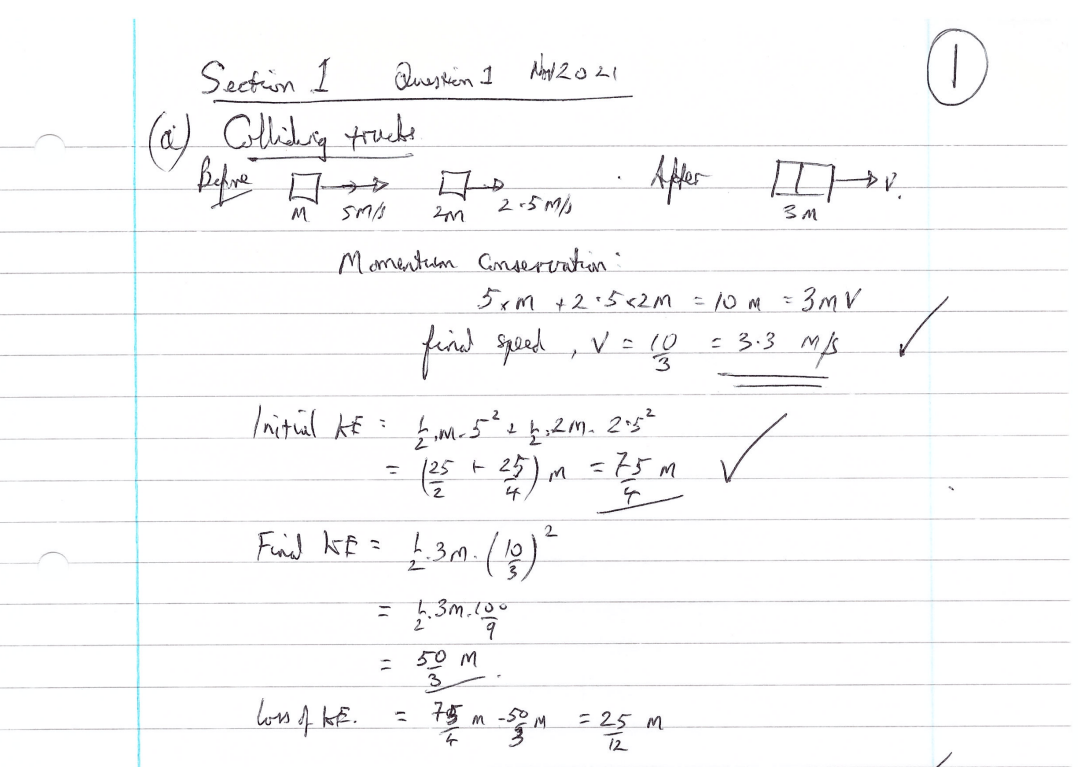 Section 1 Question 1 Nov 2021
1
(a) Colliding trucks
Before M 5 m/s 2m 2.5 m/s After 3M V.
Momentum Conservation:
5 x m + 2.5 x 2m = 10 m = 3mV
final speed, V = 10/3 = 3.3 m/s ✓
Initial KE = 1/2 . m . 5² + 1/2 . 2m . 2.5²
= (25/2 + 25/4) m = 75/4 m ✓
Final KE = 1/2 . 3m . (10/3)²
= 1/2 . 3m . 100/9
= 50/3 M.
Loss of KE. = 75/4 m - 50/3 m = 25/12 m